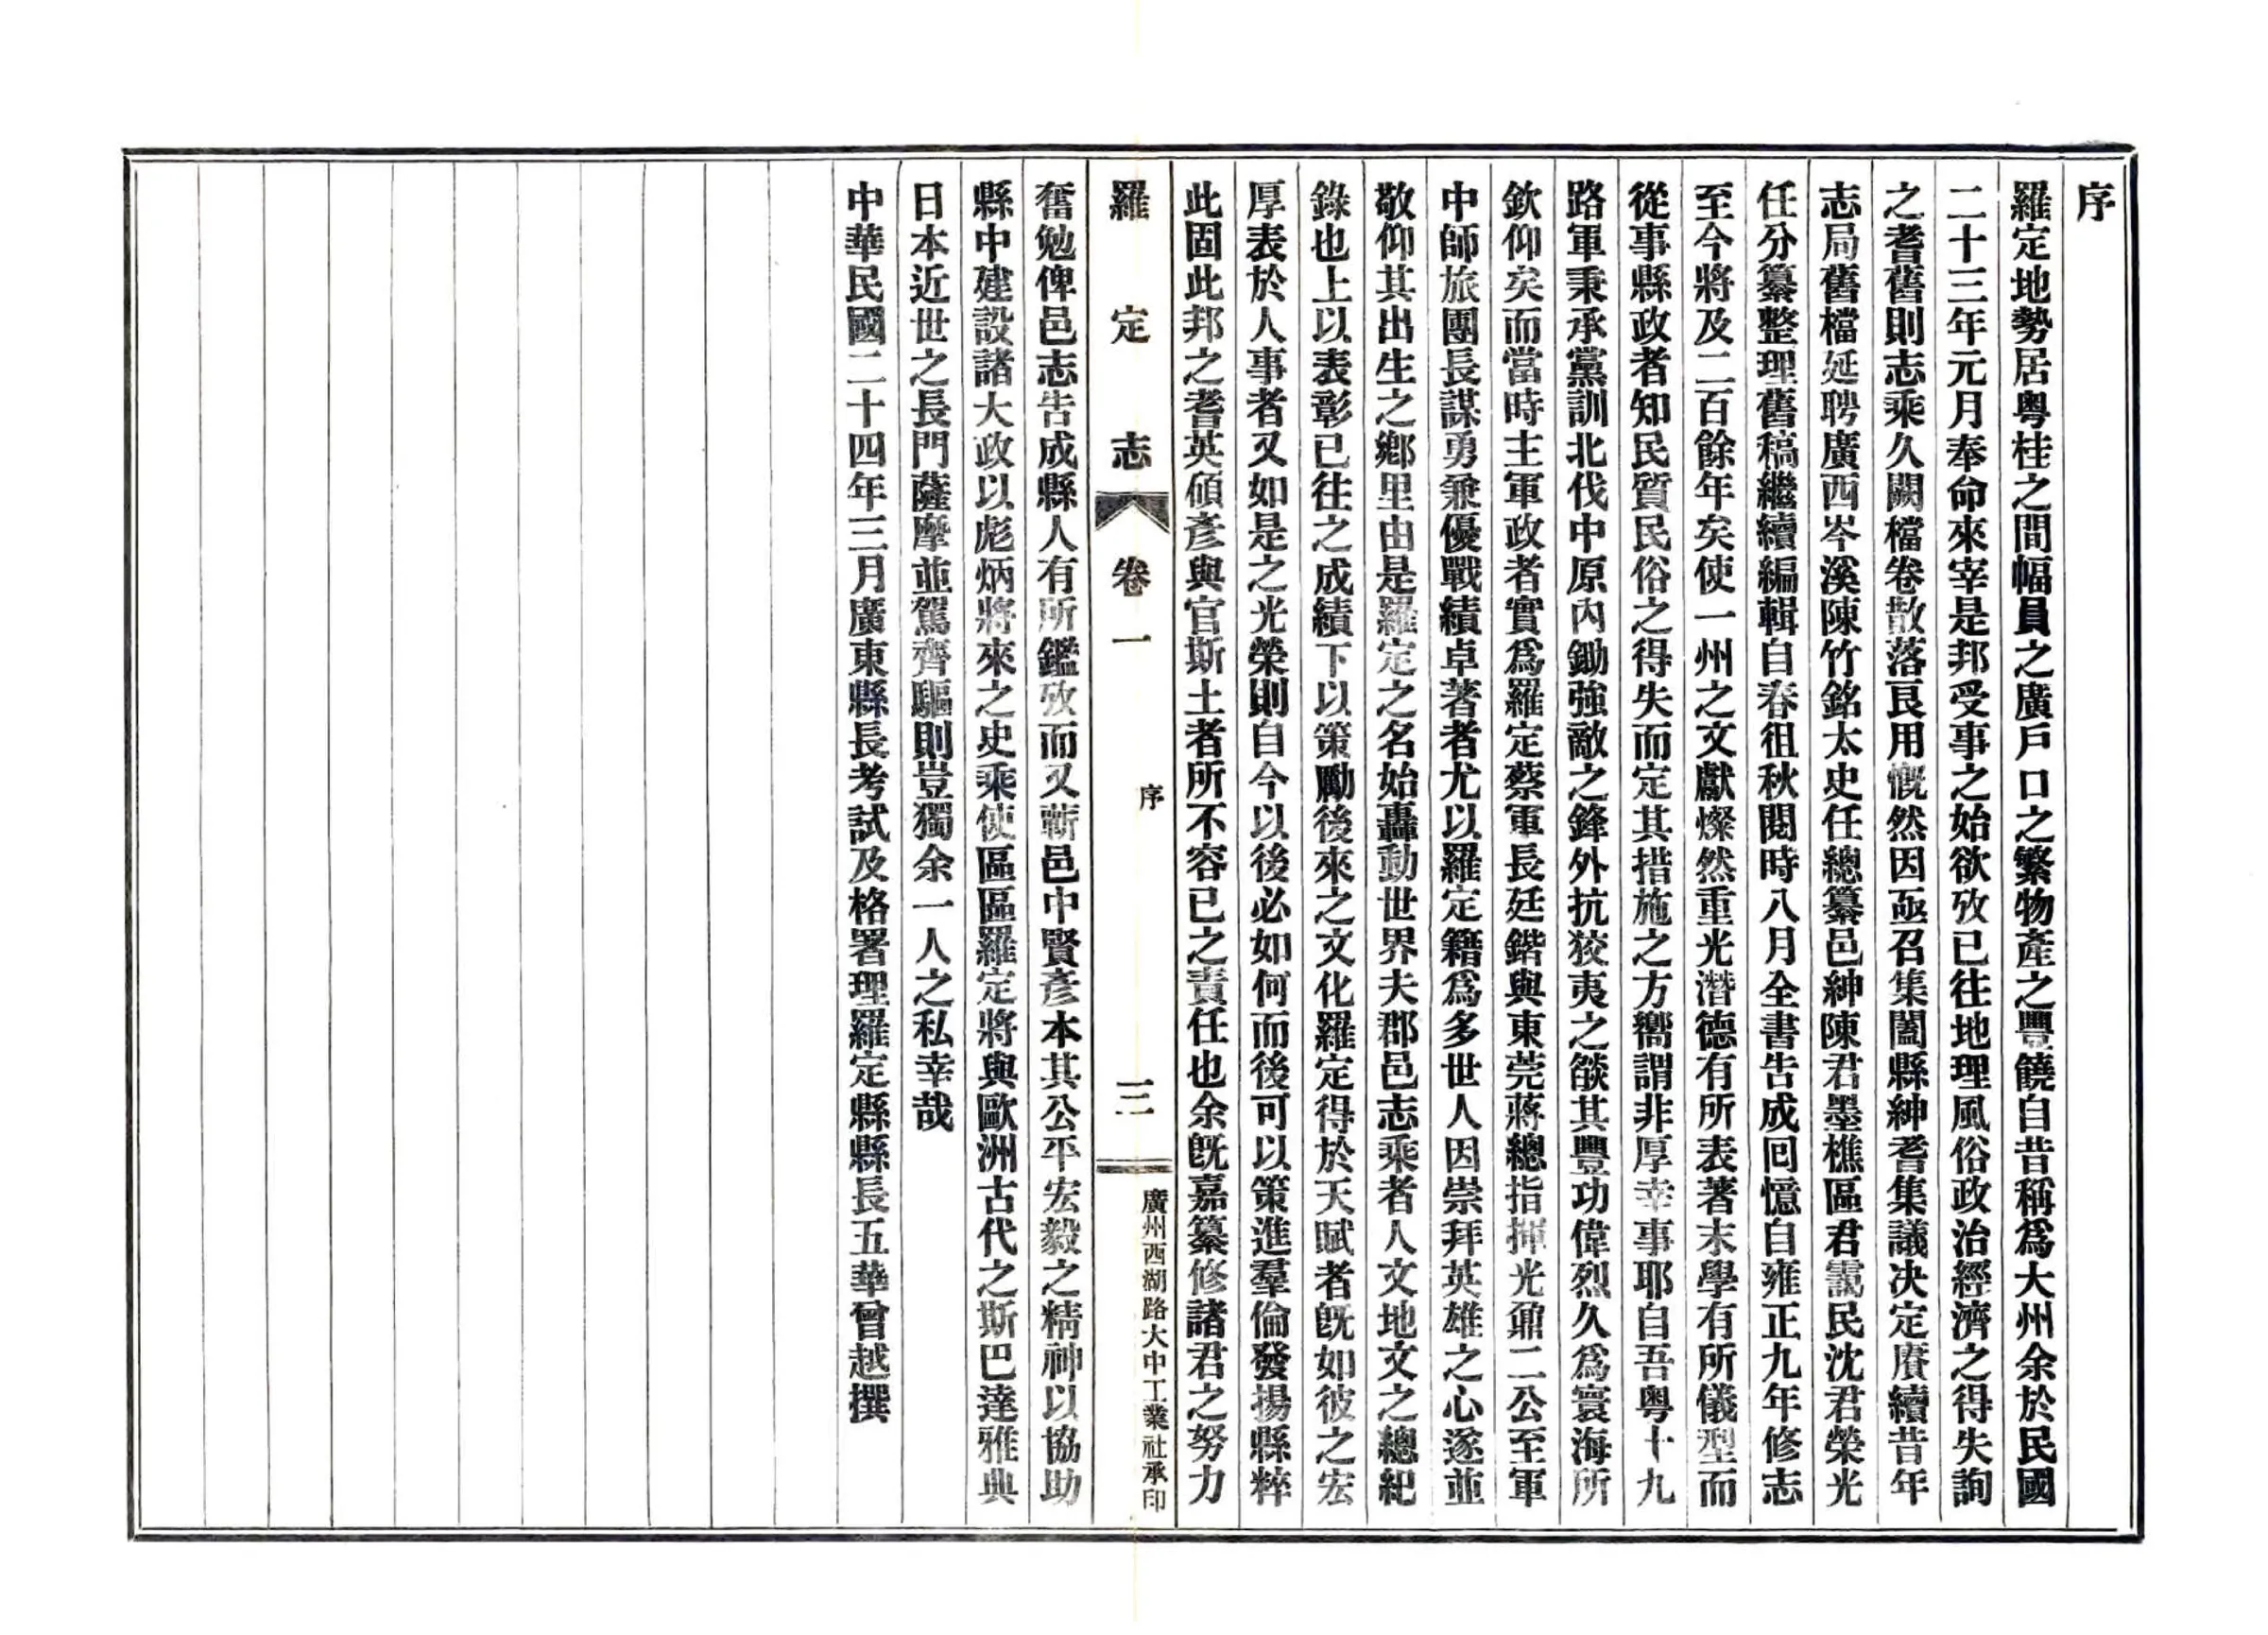 序
羅定地勢居粵桂之間幅員之廣戶口之繁物產之豐饒自昔稱爲大州余於民國
二十三年元月奉命來宰是邦受事之始欲攷已往地理風俗政治經濟之得失詢
之耆舊則志乘久闕檔卷散落艮用慨然因亟召集闔縣紳耆集議決定賡續昔年
志局舊檔延聘廣西岑溪陳竹銘太史任總纂邑紳陳君墨樵區君靄民沈君榮光
任分纂整理舊稿繼續編輯自春徂秋閱時八月全書告成回憶自雍正九年修志
至今將及二百餘年矣使一州之文獻燦然重光潛德有所表著末學有所儀型而
從事縣政者知民質民俗之得失而定其措施之方嚮謂非厚幸事耶自吾粵十九
路軍秉承黨訓北伐中原內鋤強敵之鋒外抗狡夷之燄其豐功偉烈久爲寰海所
欽仰矣而當時主軍政者實爲羅定蔡軍長廷鍇與東莞蔣總指揮光鼐二公至軍
中師旅團長謀勇兼優戰績卓著者尤以羅定籍爲多世人因崇拜英雄之心遂並
敬仰其出生之鄉里由是羅定之名始轟動世界夫郡邑志乘者人文地文之總紀
錄也上以表彰已往之成績下以策勵後來之文化羅定得於天賦者旣如彼之宏
厚表於人事者又如是之光榮則自今以後必如何而後可以策進羣倫發揚縣粹
此固此邦之耆英碩彥與官斯土者所不容已之責任也余旣嘉纂修諸君之努力
羅定志 卷一 序 三 廣州西湖路大中工業社承印
奮勉俾邑志告成縣人有所鑑攷而又蘄邑中賢彥本其公平宏毅之精神以協助
縣中建設諸大政以彪炳將來之史乘使區區羅定將與歐洲古代之斯巴達雅典
日本近世之長門薩摩並駕齊驅則豈獨余一人之私幸哉
中華民國二十四年三月廣東縣長考試及格署理羅定縣縣長五華曾越撰